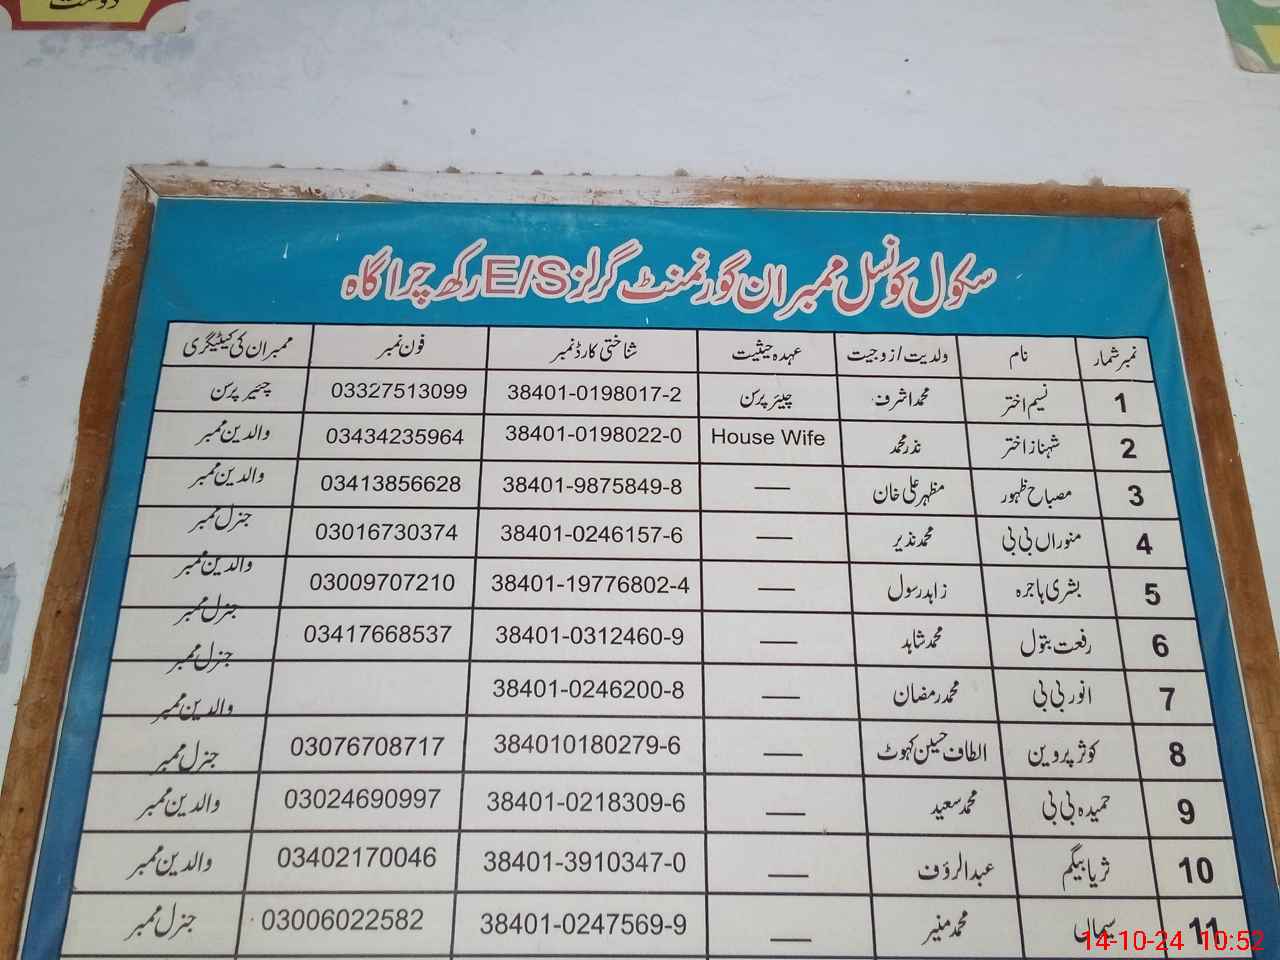 دوست
سکول کونسل ممبران گورنمنٹ گرلز E/S رکھ چراگاہ
نمبر شمار نام ولدیت/زوجیت عہدہ حیثیت شناختی کارڈ نمبر فون نمبر ممبران کی کیٹیگری
1 نسیم اختر محمد اشرف چیئر پرسن 38401-0198017-2 03327513099 چئیر پرسن
2 شہناز اختر نذر محمد House Wife 38401-0198022-0 03434235964 والدین ممبر
3 مصباح ظہور مظہر علی خان — 38401-9875849-8 03413856628 والدین ممبر
4 منوراں بی بی محمد نذیر — 38401-0246157-6 03016730374 جنرل ممبر
5 بشری ہاجرہ زاہد رسول — 38401-19776802-4 03009707210 والدین ممبر
6 رفعت بتول محمد شاہد — 38401-0312460-9 03417668537 جنرل ممبر
7 انور بی بی محمد رمضان — 38401-0246200-8 جنرل ممبر
8 کوثر پروین الطاف حسین کہوٹ — 384010180279-6 03076708717 والدین ممبر
جنرل ممبر
9 حمیدہ بی بی محمد سعید — 38401-0218309-6 03024690997 والدین ممبر
10 ثریا بیگم عبدالرؤف — 38401-3910347-0 03402170046 والدین ممبر
11 سیماں محمد منیر — 38401-0247569-9 03006022582 جنرل ممبر
14-10-24 10:52